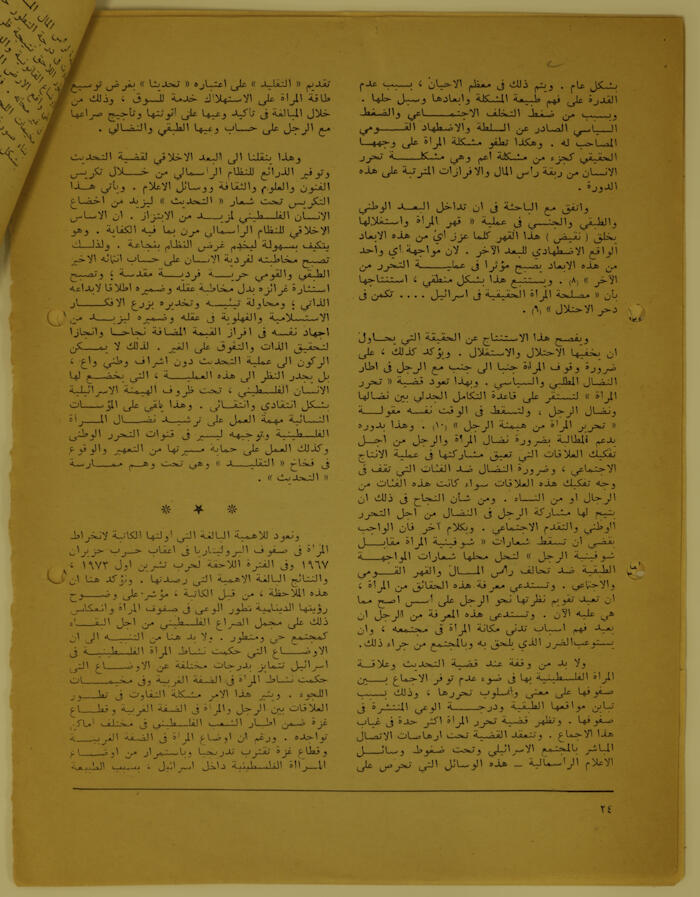 بشكل عام . ويتم ذلك في معظم الاحيان ، بسبب عدم
القدرة على فهم طبيعة المشكلة وابعادها وسبل حلها .
وبسبب من ضغط التخلف الاجتماعي والضغط
السياسي الصادر عن السلطة والاضطهاد القومي
المصاحب له . وهكذا تطفو مشكلة المرأة على وجهها
الحقيقي كجزء من مشكلة اعم وهي مشكلة تحرر
الانسان من ربقة رأس المال والافرازات المترتبة على هذه
الدورة .
واتفق مع الباحثة في ان تداخل البعد الوطني
والطبقي والجنسي في عملية « قهر المرأة واستغلالها
يخلق ( نقيض ) هذا القهر كلما عزز أي من هذه الابعاد
الواقع الاضطهادي للبعد الآخر . لان مواجهة أي واحد
من هذه الابعاد يصبح مؤثرا في عملية التحرر من
الآخر » (٨) . ويستتبع هذا بشكل منطقي ، استنتاجها
بأن « مصلحة المرأة الحقيقية في اسرائيل .... تكمن في
دحر الاحتلال » (٩) .
ويفصح هذا الاستنتاج عن الحقيقة التي يحاول
ان يخفيها الاحتلال والاستغلال . ويؤكد كذلك ، على
ضرورة وقوف المرأة جنبا الى جنب مع الرجل في اطار
النضال المطلبي والسياسي . وبهذا تعود قضية « تحرر
المرأة » لتستقر على قاعدة التكامل الجدلي بين نضالها
ونضال الرجل ، ولتسقط في الوقت نفسه مقولة
« تحرير المرأة من هيمنة الرجل » (١٠) . وهذا بدوره
يدعم المطالبة بضرورة نضال المرأة والرجل من اجل
تفكيك العلاقات التي تعيق مشاركتها في عملية الانتاج
الاجتماعي ، وضرورة النضال ضد الفئات التي تقف في
وجه تفكيك هذه العلاقات سواء كانت هذه الفئات من
الرجال او من النساء . ومن شأن النجاح في ذلك ان
يتيح لها مشاركة الرجل في النضال من اجل التحرر
الوطني والتقدم الاجتماعي . وبكلام آخر فان الواجب
يقضي ان تسقط شعارات « شوفينية المرأة مقابل
شوفينية الرجل » لتحل محلها شعارات المواجهة
الطبقية ضد تحالف رأس المال والقهر القومي
والاجتماعي . وتستدعي معرفة هذه الحقائق من المرأة ،
ان تعيد تقويم نظرتها نحو الرجل على اسس اصح مما
هي عليه الآن . وتستدعي هذه المعرفة من الرجل ان
يعيد فهم اسباب تدني مكانة المرأة في مجتمعه ، وان
يستوعب الضرر الذي يلحق به وبالمجتمع من جراء ذلك .
ولا بد من وقفة عند قضية التحديث وعلاقة
المرأة الفلسطينية بها في ضوء عدم توفر الاجماع بين
صفوفها على معنى وأسلوب تحررها ، وذلك بسبب
تباين مواقعها الطبقية ودرجة الوعي المنتشرة في
صفوفها . وتظهر قضية تحرر المرأة اكثر حدة في غياب
هذا الاجماع . وتتعقد القضية تحت ارهاصات الاتصال
المباشر بالمجتمع الاسرائيلي وتحت ضغوط وسائل
الاعلام الرأسمالية ــ هذه الوسائل التي تحرص على
تقديم « التقليد » على اعتباره « تحديثا » بغرض توسيع
طاقة المرأة على الاستهلاك خدمة للسوق ، وذلك من
خلال المبالغة في تأكيد وعيها على انوثتها وتأجيج صراعها
مع الرجل على حساب وعيها الطبقي والنضالي .
وهذا ينقلنا الى البعد الاخلاقي لقضية التحديث
وتوفير الذرائع للنظام الرأسمالي من خلال تكريس
الفنون والعلوم والثقافة ووسائل الاعلام . ويأتي هذا
التكريس تحت شعار « التحديث » ليزيد من اخضاع
الانسان الفلسطيني لمزيد من الابتزاز . ان الاساس
الاخلاقي للنظام الرأسمالي مرن بما فيه الكفاية . وهو
يتكيف بسهولة ليخدم غرض النظام بنجاعة . ولذلك
تصبح مخاطبته لفردية الانسان على حساب انتمائه الاخير
الطبقي والقومي حرية فردية مقدسة ؛ وتصبح
استثارة غرائزه بدل مخاطبة عقله وضميره اطلاقا لابداعه
الذاتي ؛ ومحاولة تيئيسه وتخديره بزرع الافكار
الاستسلامية والفهلوية في عقله وضميره ليزيد من
اجهاد نفسه في افراز القيمة المضافة نجاحا وانجازا
لتحقيق الذات والتفوق على الغير . لذلك لا يمكن
الركون الى عملية التحديث دون اشراف وطني واع ،
بل يجدر النظر الى هذه العملية ، التي يخضع لها
الانسان الفلسطيني ، تحت ظروف الهيمنة الاسرائيلية
بشكل انتقادي وانتقائي . وهذا يلقي على المؤسسات
النسائية مهمة العمل على ترشيد نضال المرأة
الفلسطينية وتوجيهه ليسير في قنوات التحرر الوطني
وكذلك العمل على حماية مسيرتها من التعهير والوقوع
في فخاخ « التقليد » وهي تحت وهم ممارسة
« التحديث » .
* * *
ونعود للاهمية البالغة التي اولتها الكاتبة لانخراط
المرأة في صفوف البروليتاريا في اعقاب حرب حزيران
١٩٦٧ وفي الفترة اللاحقة لحرب تشرين اول ١٩٧٣ ،
والنتائج البالغة الاهمية التي رصدتها . ونؤكد هنا ان
هذه الملاحظة ، من قبل الكاتبة ، مؤشر على وضوح
رؤيتها الدينامية لتطور الوعي في صفوف المرأة وانعكاس
ذلك على مجمل الصراع الفلسطيني من اجل البقاء
كمجتمع حي ومتطور . ولا بد هنا من التنبيه الى ان
الاوضاع التي حكمت نشاط المرأة الفلسطينية في
اسرائيل تتمايز بدرجات مختلفة عن الاوضاع التي
حكمت نشاط المرأة في الضفة الغربية وفي مخيمات
اللجوء . ويثير هذا الامر مشكلة التفاوت في تطور
العلاقات بين الرجل والمرأة في الضفة الغربية وقطاع
غزة ضمن اطار الشعب الفلسطيني في مختلف اماكن
تواجده . ورغم ان اوضاع المرأة في الضفة الغربية
وقطاع غزة تقترب تدريجيا وباستمرار من اوضاع
المرأة الفلسطينية داخل اسرائيل ، بسبب الطبيعة
٢٤